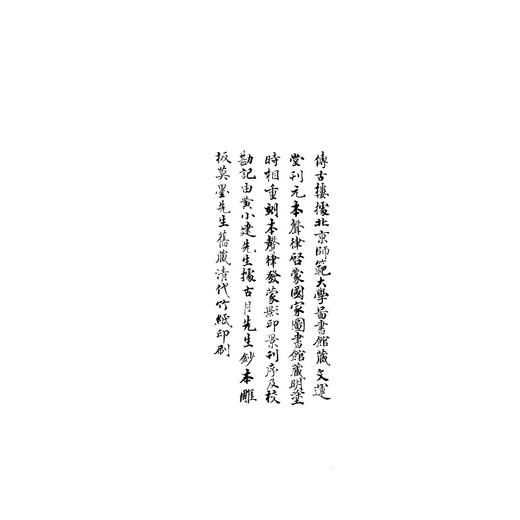 傳古樓據北京師範大學圖書館藏文選
堂刊元本聲律啓蒙國家圖書館藏明塗
時相重刻本聲律發蒙影印景刊序及校
勘記由黃小建先生據古月先生鈔本雕
板莫墨先生舊藏清代竹紙印刷